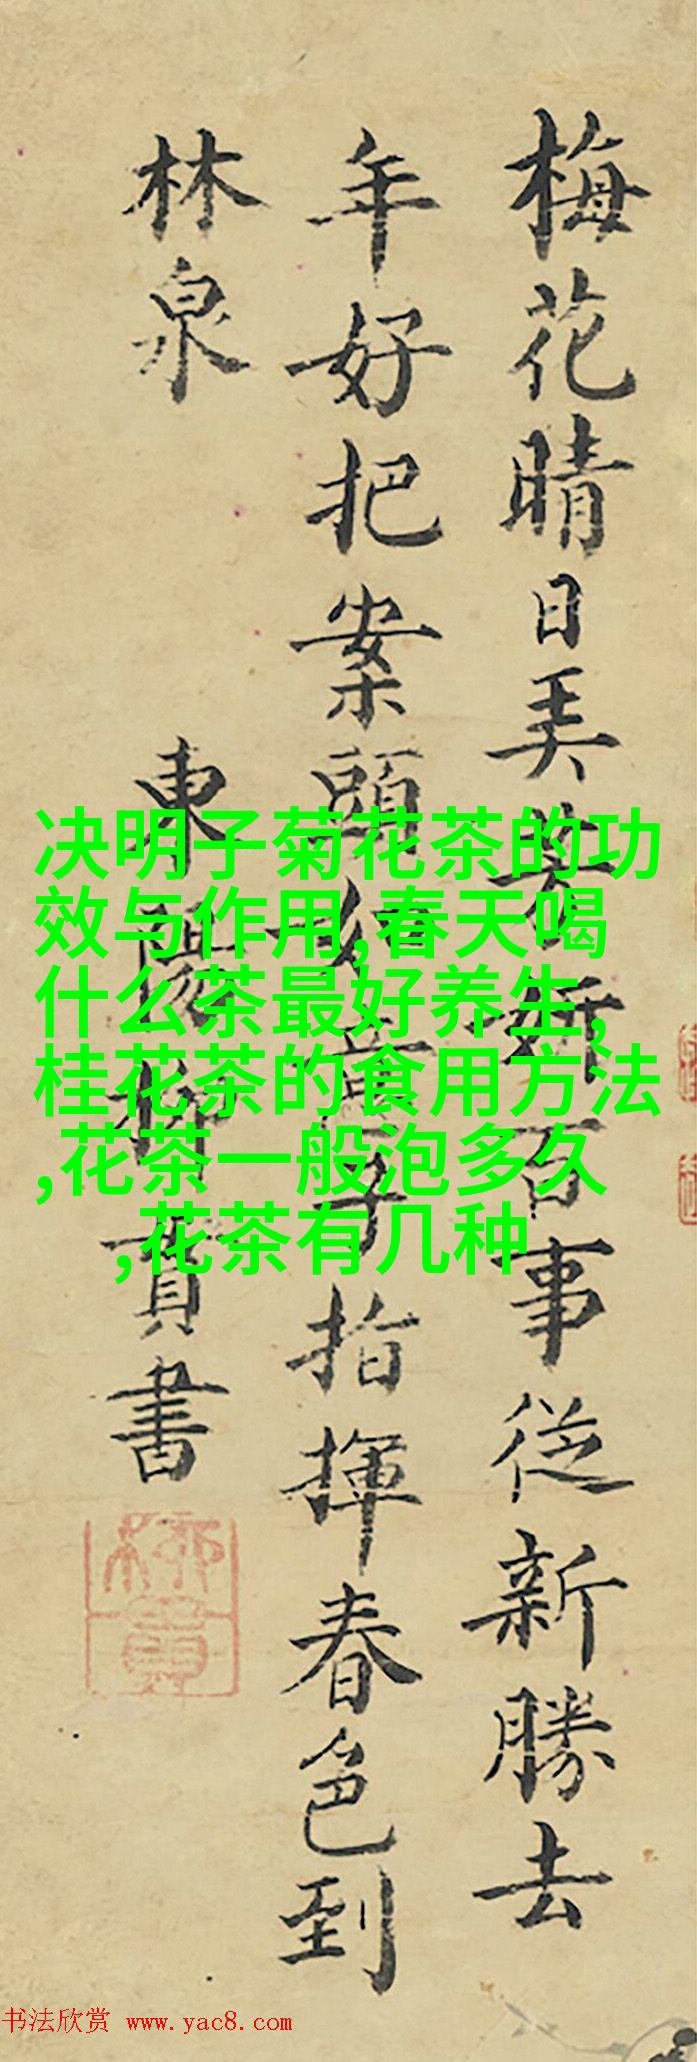 梅花晴日美芳新百事從新勝去
年好把案頭 童子指揮春色到
林泉
東陽柳貫書
柳貫
决明子菊花茶的功
效与作用,春天喝
什么茶最好养生,
桂花茶的食用方法
,花茶一般泡多久
,花茶有几种
书法欣赏 www.yac8.com